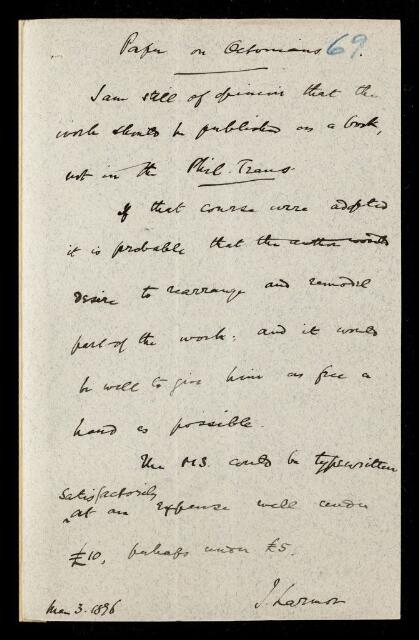 Paper on Octonians 69.
I am still of opinion that the
work should be published as a book,
not in the Phil. Trans.
If that course were adopted
it is probable that the author would
desire to rearrange and remodel
part of the work: and it would
be well to give him as free a
hand as possible.
The MS. could be typewritten
satisfactorily
at an expense well under
£10, perhaps under £5.
J. Larmor
Mar 3. 1896